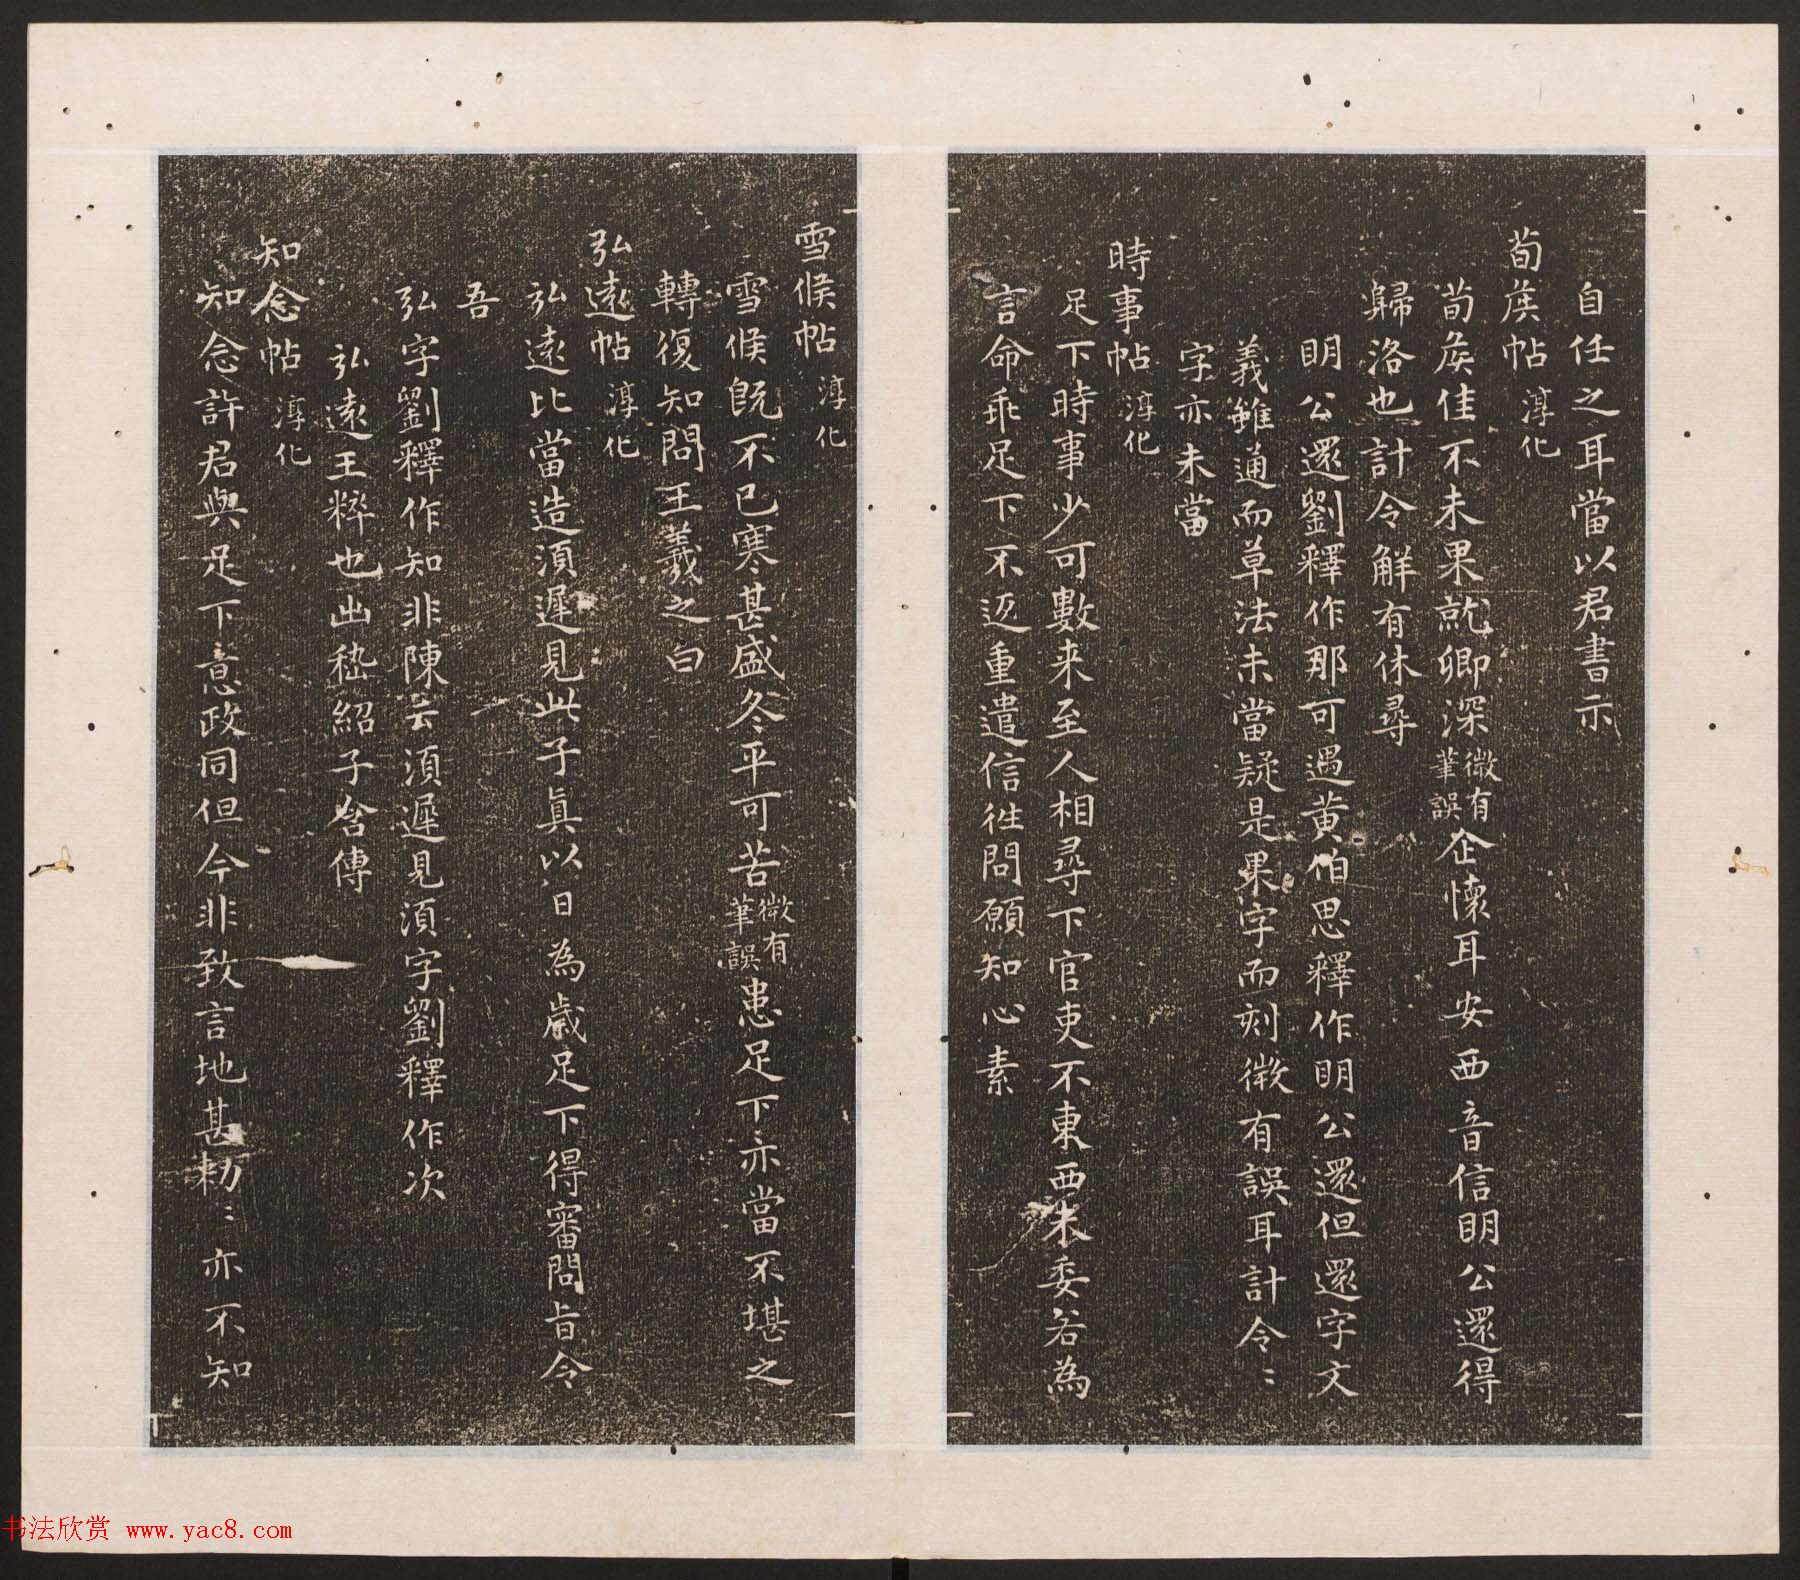 自任之耳當以君書示
荀侯帖 淳化
荀侯佳不未果就卿深微有筆誤企懷耳安西音信明公還得
歸洛也計令解有休尋
明公還劉釋作那可遇黃伯思釋作明公還但還字文
義雖通而草法未當疑是果字而刻微有誤耳計令〻
字亦未當
時事帖 淳化
足下時事少可數来至人相尋下官吏不東西未委若為
言命乖足下不返重遣信往問願知心素
雪候帖 淳化
雪候既不已寒甚盛冬平可苦微有筆誤患足下亦當不堪之
轉復知問王羲之白
弘遠帖 淳化
弘遠比當造須遲見〻此子真以日為歲足下得審問旨令
吾
弘字劉釋作知非陳云須遲見須字劉釋作次
弘遠王粹也出嵇紹子含傳
知念帖 淳化
知念許君與足下意政同但今非致言地甚勅〻亦不知
书法欣赏 www.yac8.com